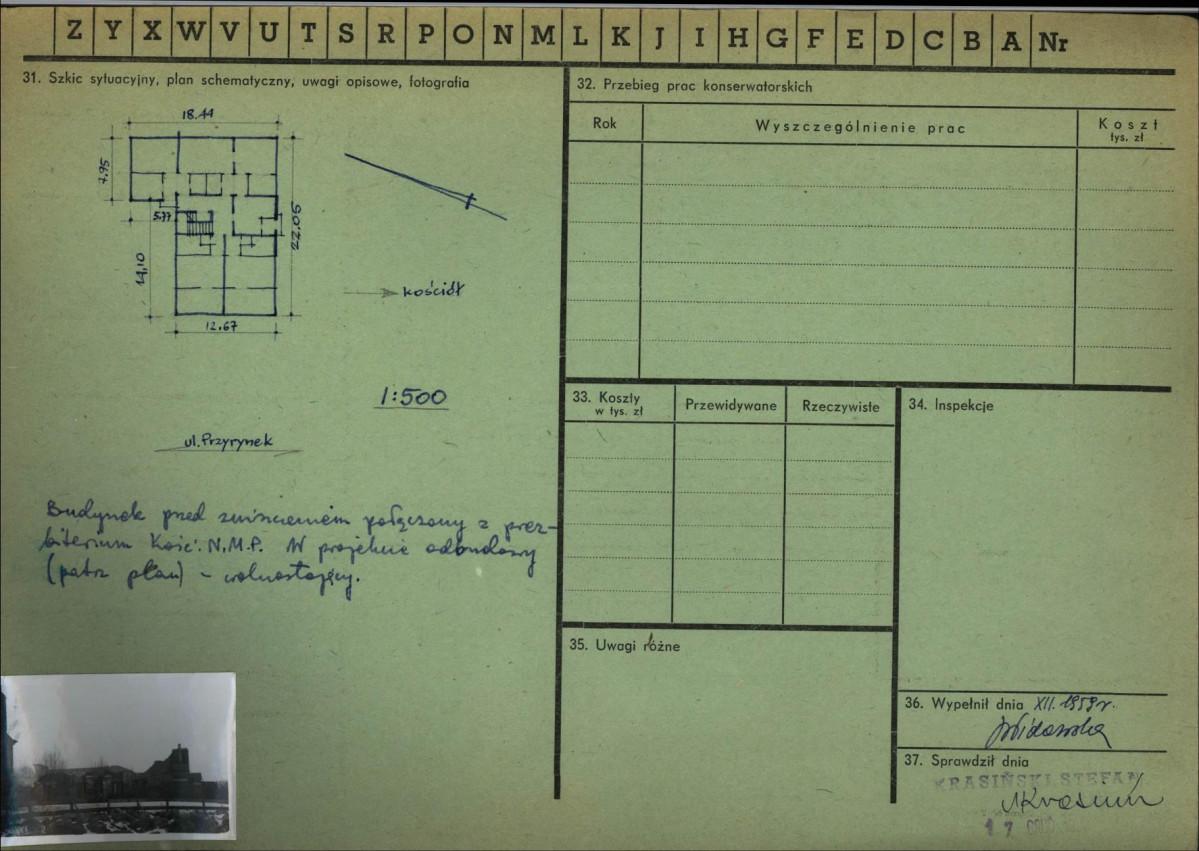 Z Y X W V U T S R P O N M L K J I H G F E D C B A Nr
31. Szkic sytuacyjny, plan schematyczny, uwagi opisowe, fotografia
18.44
7.95
5.77
22.05
14,10
12.67
kościół
1:500
ul. Przyrynek
Budynek przed zniszczeniem połączony z prez-
biterium Kość. N.M.P. W projekcie odbudowy
(patrz plan) - wolnostojący.
32. Przebieg prac konserwatorskich
Rok
Wyszczególnienie prac
Koszt
tys. zł
33. Koszty
w tys. zł
Przewidywane
Rzeczywiste
34. Inspekcje
35. Uwagi różne
36. Wypełnił dnia XII. 1959 r.
37. Sprawdził dnia
KRASIŃSKI STEFAN
17